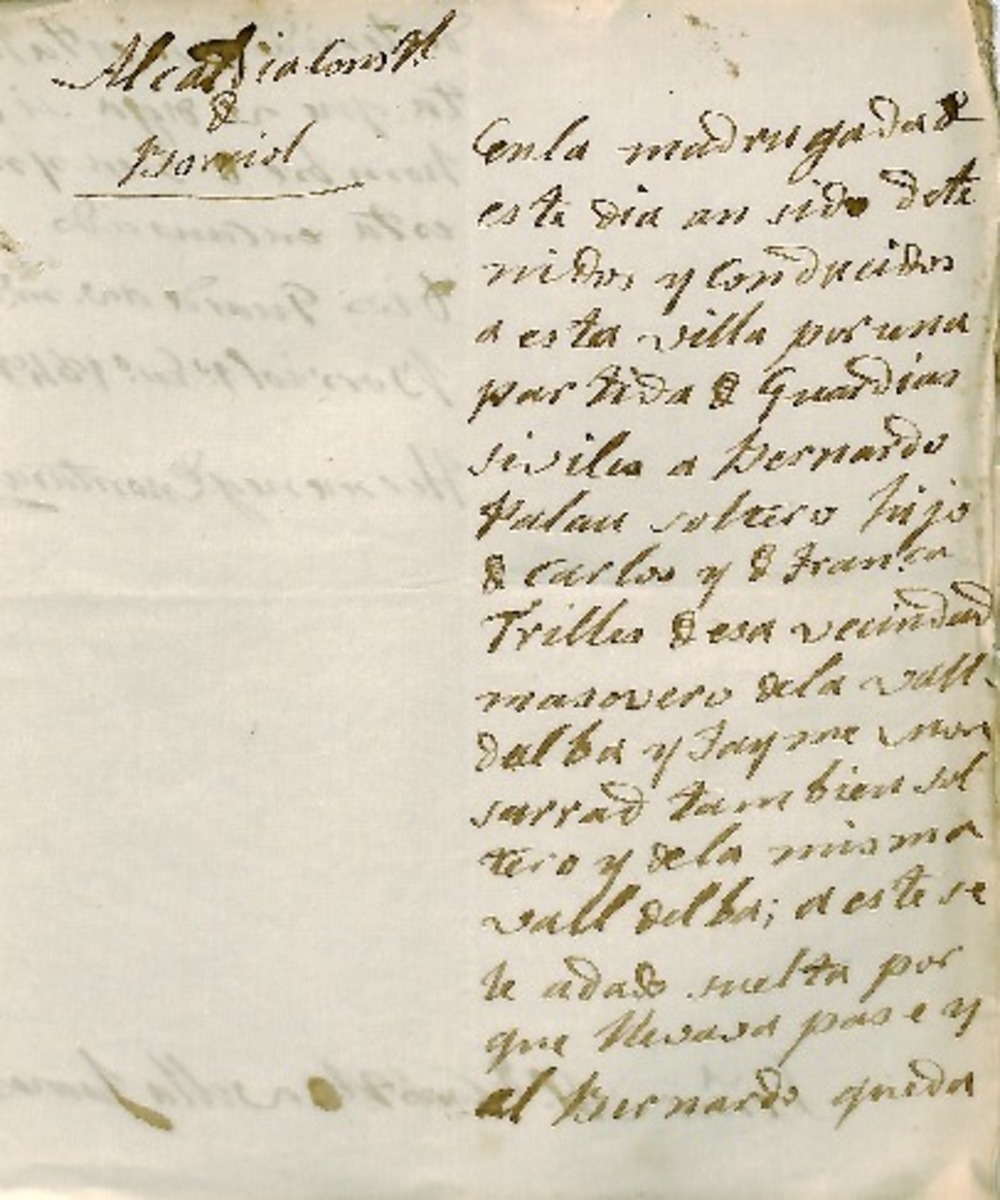 Alcaldia Consl
de
Borriol
En la madrugada de
este dia an sido dete
nidos y Conducidos
a esta villa por una
partida de Guardias
siviles a Bernardo
Palau soltero hijo
de Carlos y de Franca
Trilles de esa vecindad
masovero dela Vall
dalba y Jayme Mon
sarrad tambien sol
tero y dela misma
Vall dalba; a este se
le adado suelta por
que llevava pase y
el Bernardo queda